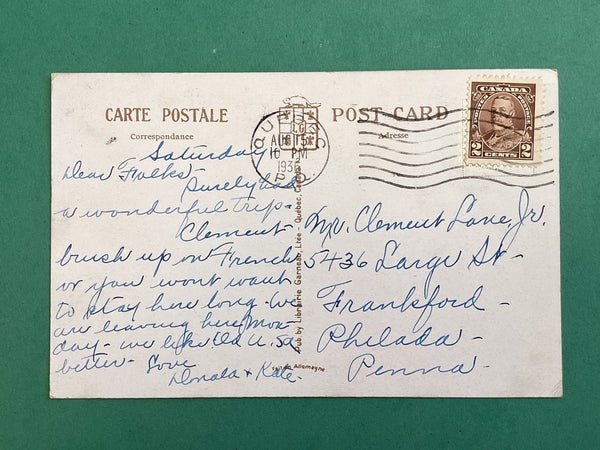 CARTE POSTALE
POST CARD
Correspondance
Adresse
CANADA
2 CENTS 2
QUEBEC
AUG 15
16 PM
1936
P.Q.
Saturday
Dear Folks-
Surely had
a wonderful trip-
Clement
brush up on French
or you wont want
to stay here long - we
are leaving here Mon-
day - we like Old U.S.A
better - Love
Donald & Kate-
Pub by Librairie Garneau, Ltée - Québec, Canada
Allemagne
Mr. Clement Lane, Jr.
5436 Large St -
Frankford -
Philada -
Penna -